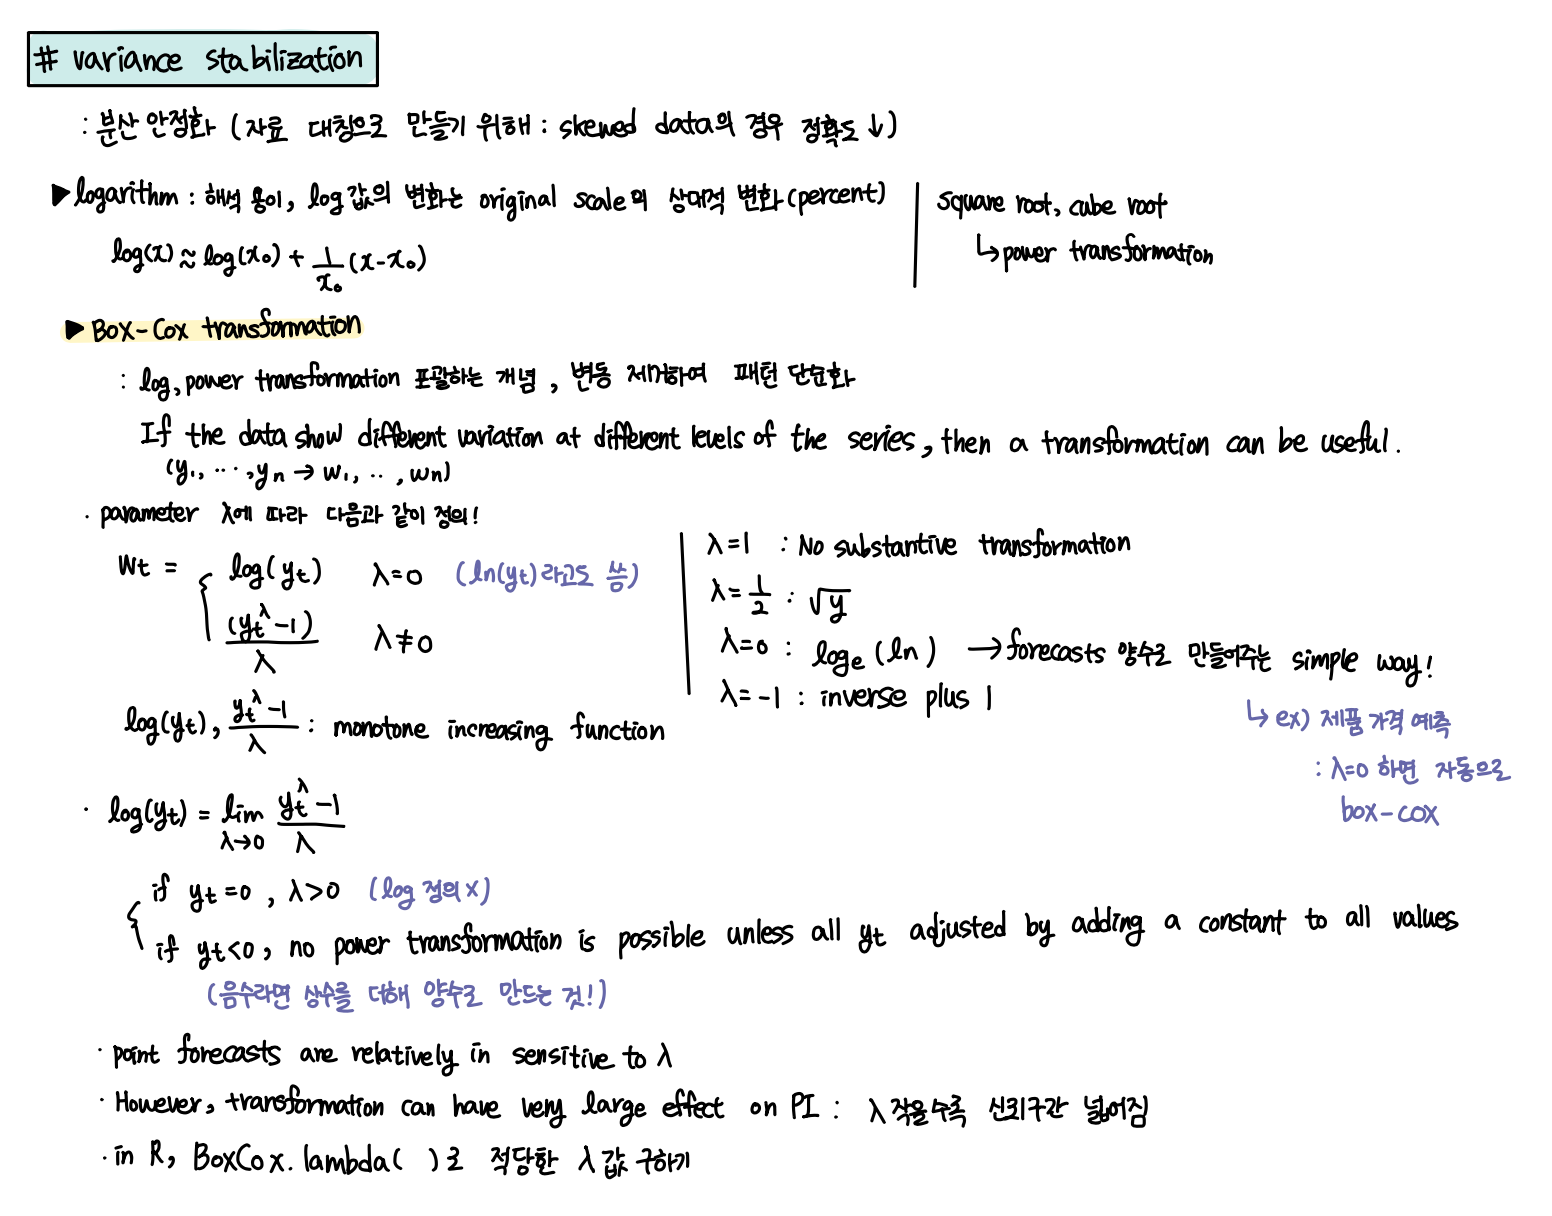 # variance stabilization
: 분산 안정화 (자료 대칭으로 만들기 위해 : skewed data의 경우 정확도 ↓)
▶ logarithm : 해석 용이, log값의 변화는 original scale의 상대적 변화(percent)
log(x) ≈ log(x₀) + 1/x₀ (x-x₀)
square root, cube root
↳ power transformation
▶ Box-Cox transformation
: log, power transformation 포괄하는 개념, 변동 제거하여 패턴 단순화
If the data show different variation at different levels of the series, then a transformation can be useful.
(y₁, ‥‥, yn → w₁, ‥, wn)
· parameter λ에 따라 다음과 같이 정의!
Wt = { log(yt) λ=0 (ln(yt)라고도 씀)
(yt^λ -1)/λ λ≠0
log(yt), (yt^λ -1)/λ : monotone increasing function
λ=1 : No substantive transformation
λ=1/2 : √y
λ=0 : logₑ (ln) → forecasts 양수로 만들어주는 simple way!
λ=-1 : inverse plus 1
↳ ex) 제품 가격 예측
: λ=0 하면 자동으로
box-cox
· log(yt) = lim λ→0 (yt^λ -1)/λ
{ if yt=0, λ>0 (log 정의 x)
if yt<0, no power transformation is possible unless all yt adjusted by adding a constant to all values
(음수라면 상수를 더해 양수로 만드는 것!)
· point forecasts are relatively in sensitive to λ
· However, transformation can have very large effect on PI : λ 작을수록 신뢰구간 넓어짐
· in R, BoxCox.lambda( )로 적당한 λ 값 구하기